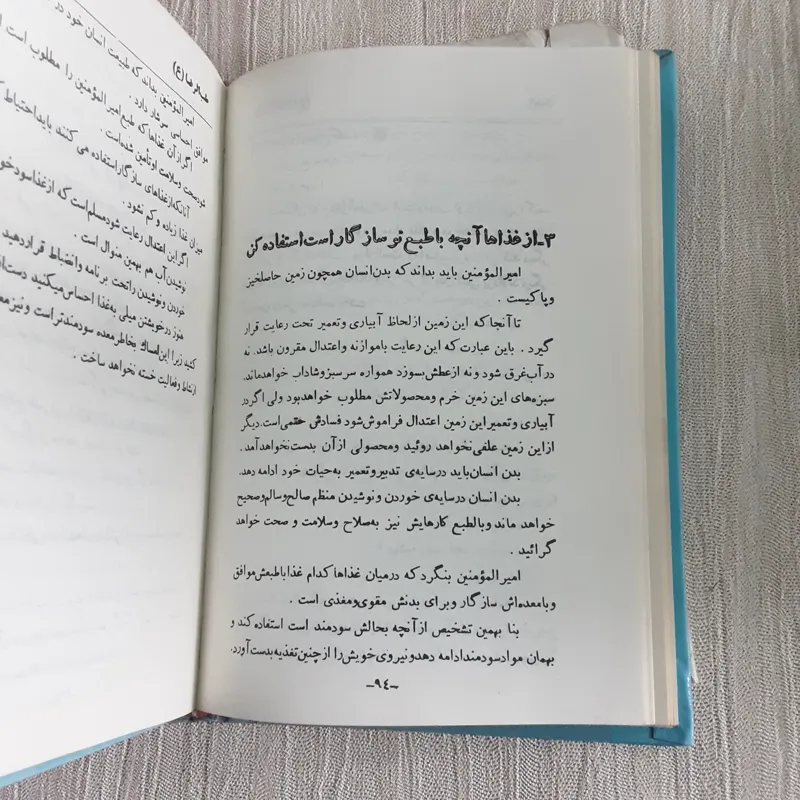 ۳ـ از غذاها آنچه با طبع تو سازگار است استفاده کن
امیرالمؤمنین باید بداند که بدن انسان همچون زمین حاصلخیز
و پاکیست .
تا آنجا که این زمین از لحاظ آبیاری و تعمیر تحت رعایت قرار
گیرد . باین عبارت که این رعایت با موازنه و اعتدال مقرون باشد. نه
در آب غرق شود و نه از عطش بسوزد همواره سرسبز و شاداب خواهد ماند.
سبزه‌های این زمین خرم و محصولاتش مطلوب خواهد بود ولی اگر در
آبیاری و تعمیر این زمین اعتدال فراموش شود فسادش حتمی است. دیگر
از این زمین علفی نخواهد روئید و محصولی از آن بدست نخواهد آمد.
بدن انسان باید در سایه‌ی تدبیر و تعمیر به حیات خود ادامه دهد.
بدن انسان در سایه‌ی خوردن و نوشیدن منظم صالح و سالم و صحیح
خواهد ماند و بالطبع کارهایش نیز به صلاح و سلامت و صحت خواهد
گرائید .
امیرالمؤمنین بنگرد که در میان غذاها کدام غذا با طبعش موافق
و با معده‌اش سازگار و برای بدنش مقوی و مغذی است .
بنا بهمین تشخیص از آنچه بحالش سودمند است استفاده کند و
بهمان مواد سودمند ادامه دهد و نیروی خویش را از چنین تغذیه بدست آورد.
ـ۹۴ـ
طب الرضا (ع)
امیرالمؤمنین بداند که طبیعت انسان خود در
موافق احساسی سرشار دارد .
اگر از آن غذاها که طبع امیرالمؤمنین را مطلوب است
شود صحت و سلامت او تأمین شده است .
آنانکه از غذاهای سازگار استفاده می کنند باید احتیاط
میزان غذا زیاده و کم نشود .
اگر این اعتدال رعایت شود مسلم است که از غذا سود
نوشیدن آب هم بهمین منوال است .
خوردن و نوشیدن را تحت برنامه و انضباط قرار دهید
هنوز در خویشتن میلی به غذا احساس میکنید دست
کشید زیرا این امساك بخاطر معده سودمندتر است و نیز
از نشاط و فعالیت خسته نخواهد ساخت .